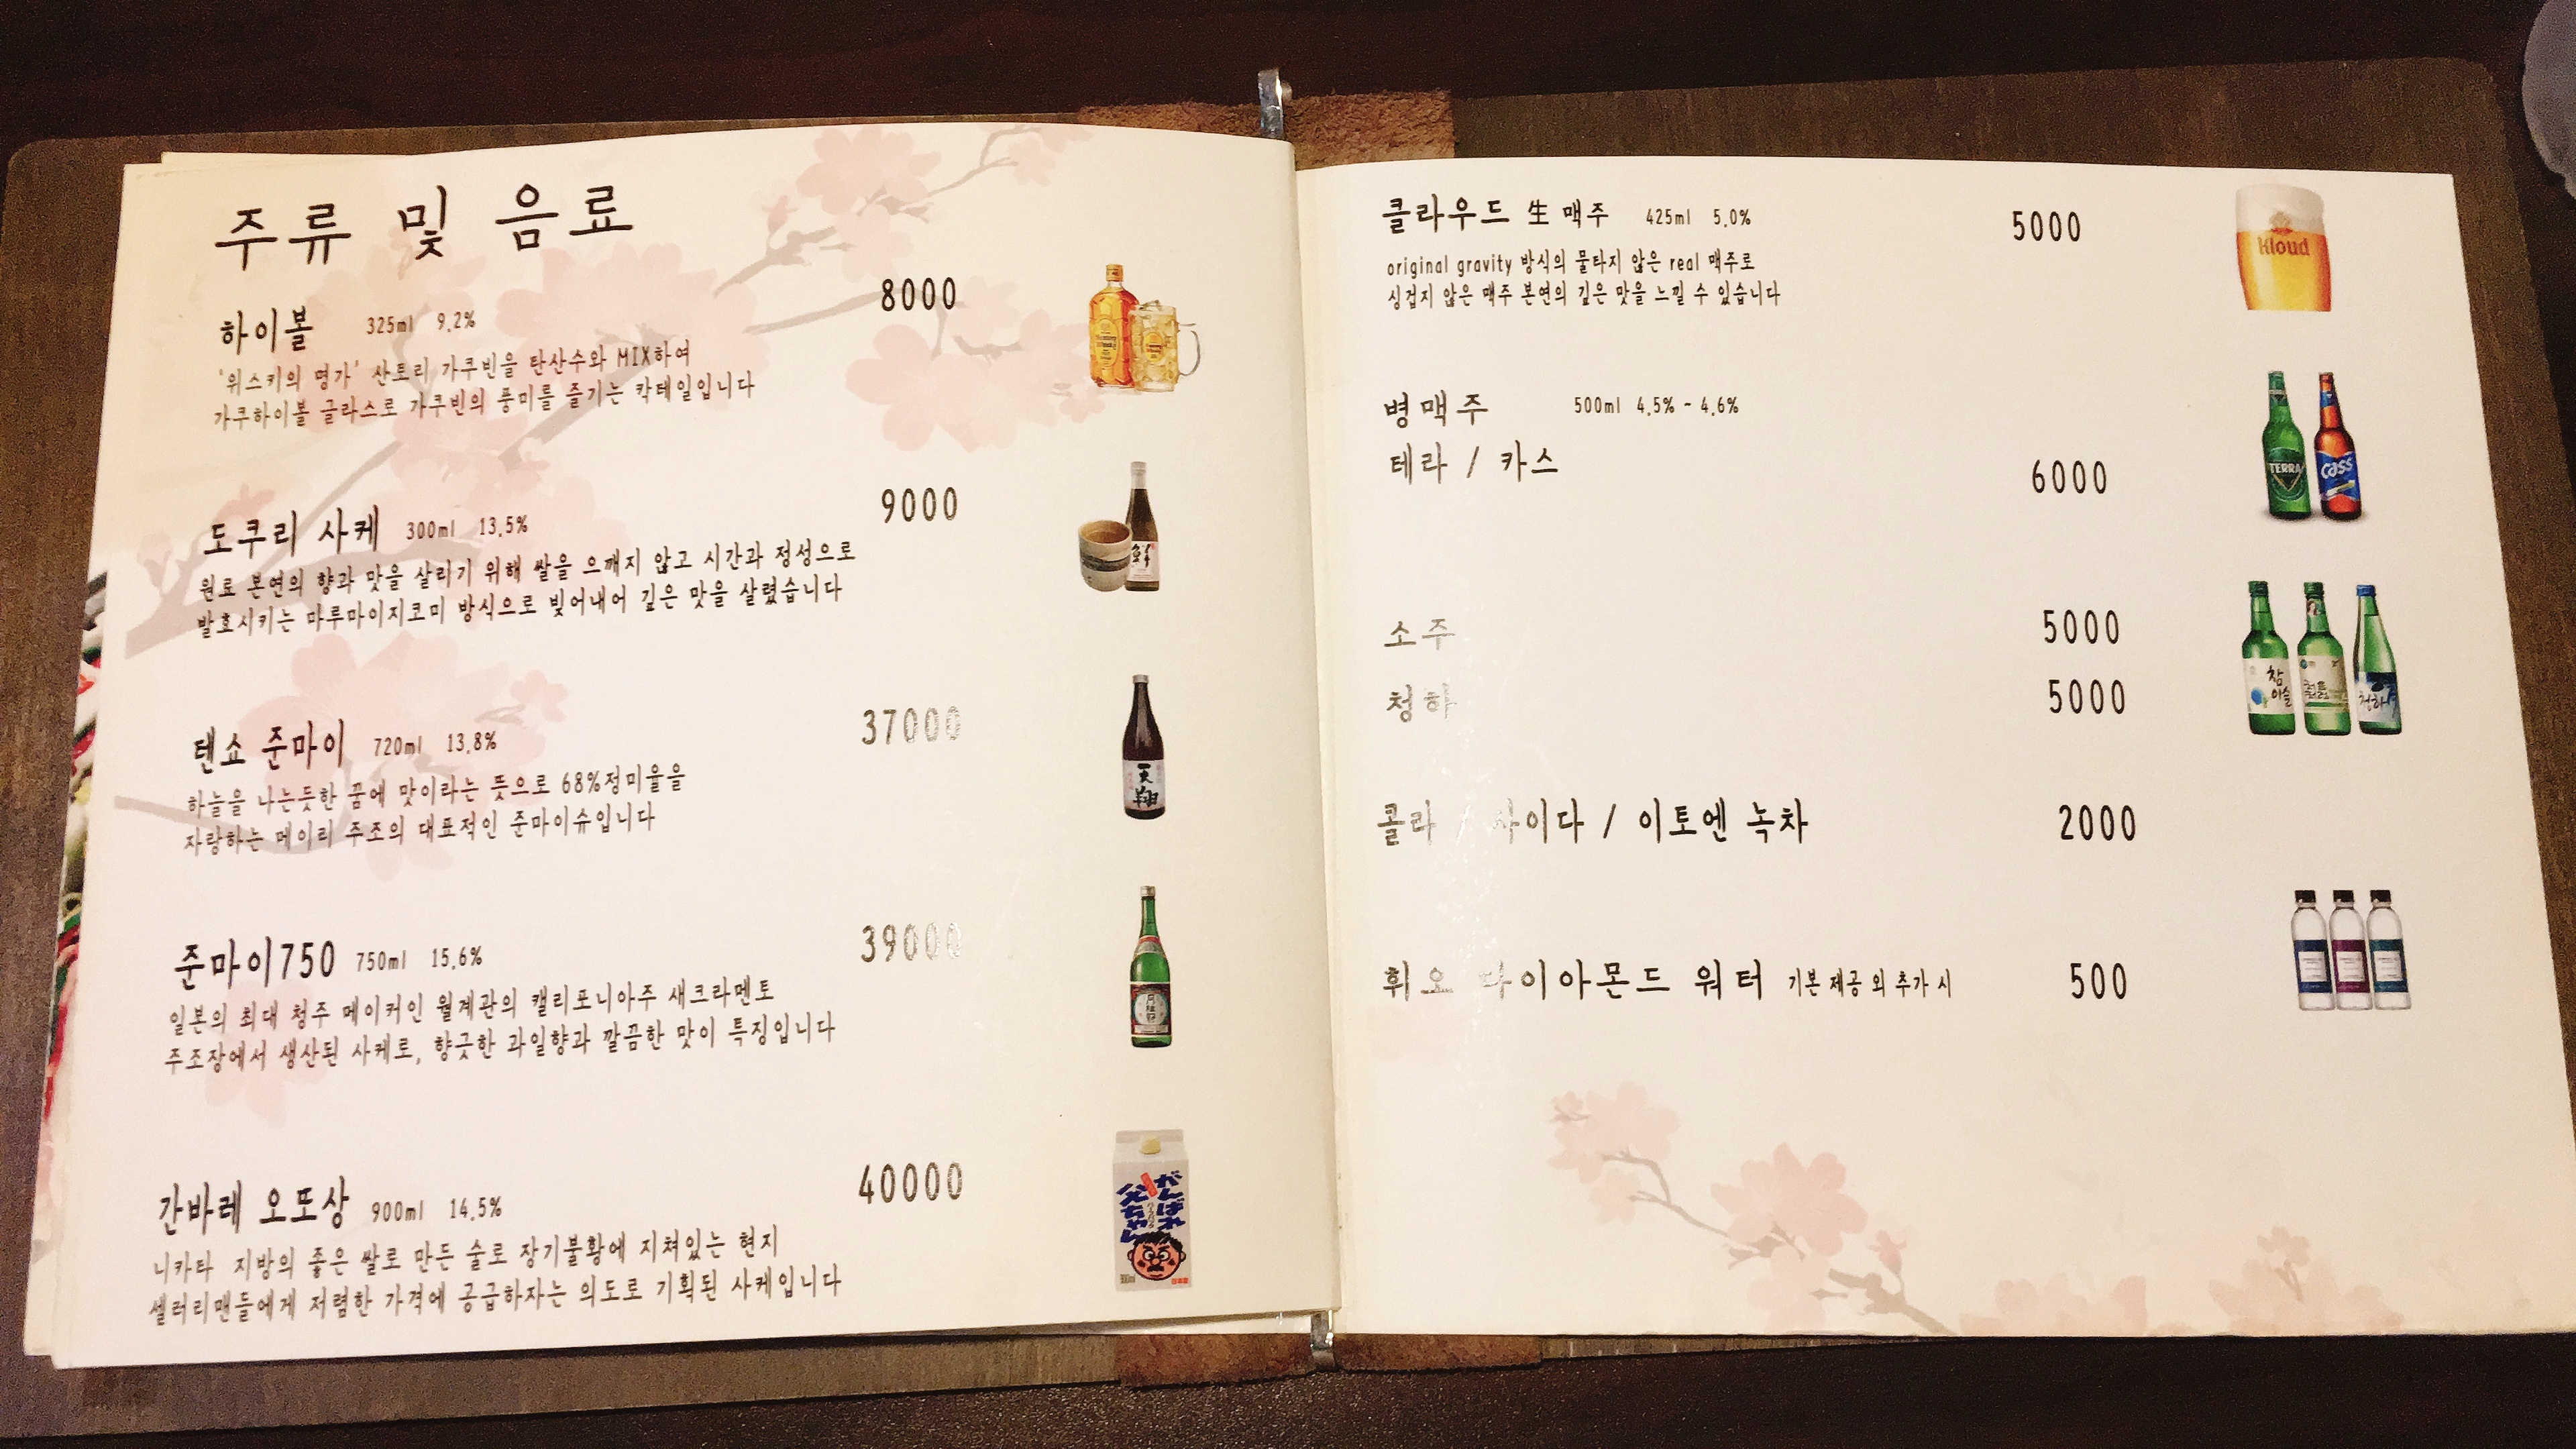 주류 및 음료
하이볼 325ml 9.2% 8000
'위스키의 명가' 산토리 가쿠빈을 탄산수와 MIX하여
가쿠하이볼 글라스로 가쿠빈의 풍미를 즐기는 칵테일입니다
도쿠리 사케 300ml 13.5% 9000
원료 본연의 향과 맛을 살리기 위해 쌀을 으깨지 않고 시간과 정성으로
발효시키는 마루마이지코미 방식으로 빚어내어 깊은 맛을 살렸습니다
텐쇼 준마이 720ml 13.8% 37000
하늘을 나는듯한 꿈에 맛이라는 뜻으로 68%정미율을
자랑하는 메이리 주조의 대표적인 준마이슈입니다
天翔
준마이750 750ml 15.6% 39000
일본의 최대 청주 메이커인 월계관의 캘리포니아주 새크라멘토
주조장에서 생산된 사케로, 향긋한 과일향과 깔끔한 맛이 특징입니다
月桂冠
간바레 오또상 900ml 14.5% 40000
니카타 지방의 좋은 쌀로 만든 술로 장기불황에 지쳐있는 현지
셀러리맨들에게 저렴한 가격에 공급하자는 의도로 기획된 사케입니다
がんばれ
父ちゃん
클라우드 生 맥주 425ml 5.0% 5000
original gravity 방식의 물타지 않은 real 맥주로
싱겁지 않은 맥주 본연의 깊은 맛을 느낄 수 있습니다
Kloud
병맥주 500ml 4.5% ~ 4.6%
테라 / 카스 6000
TERRA
Cass
소주 5000
청하 5000
참
이슬
청하
콜라 / 사이다 / 이토엔 녹차 2000
휘오 다이아몬드 워터 기본 제공 외 추가 시 500